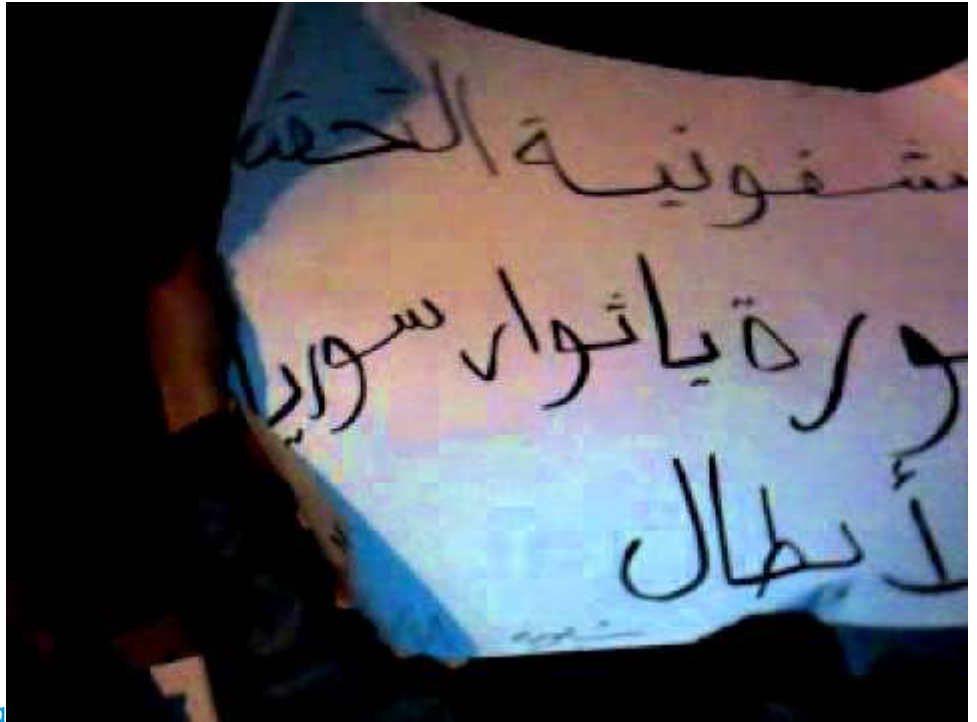 شفونية التحقت
ورة ياثوار سوريا
لأبطال